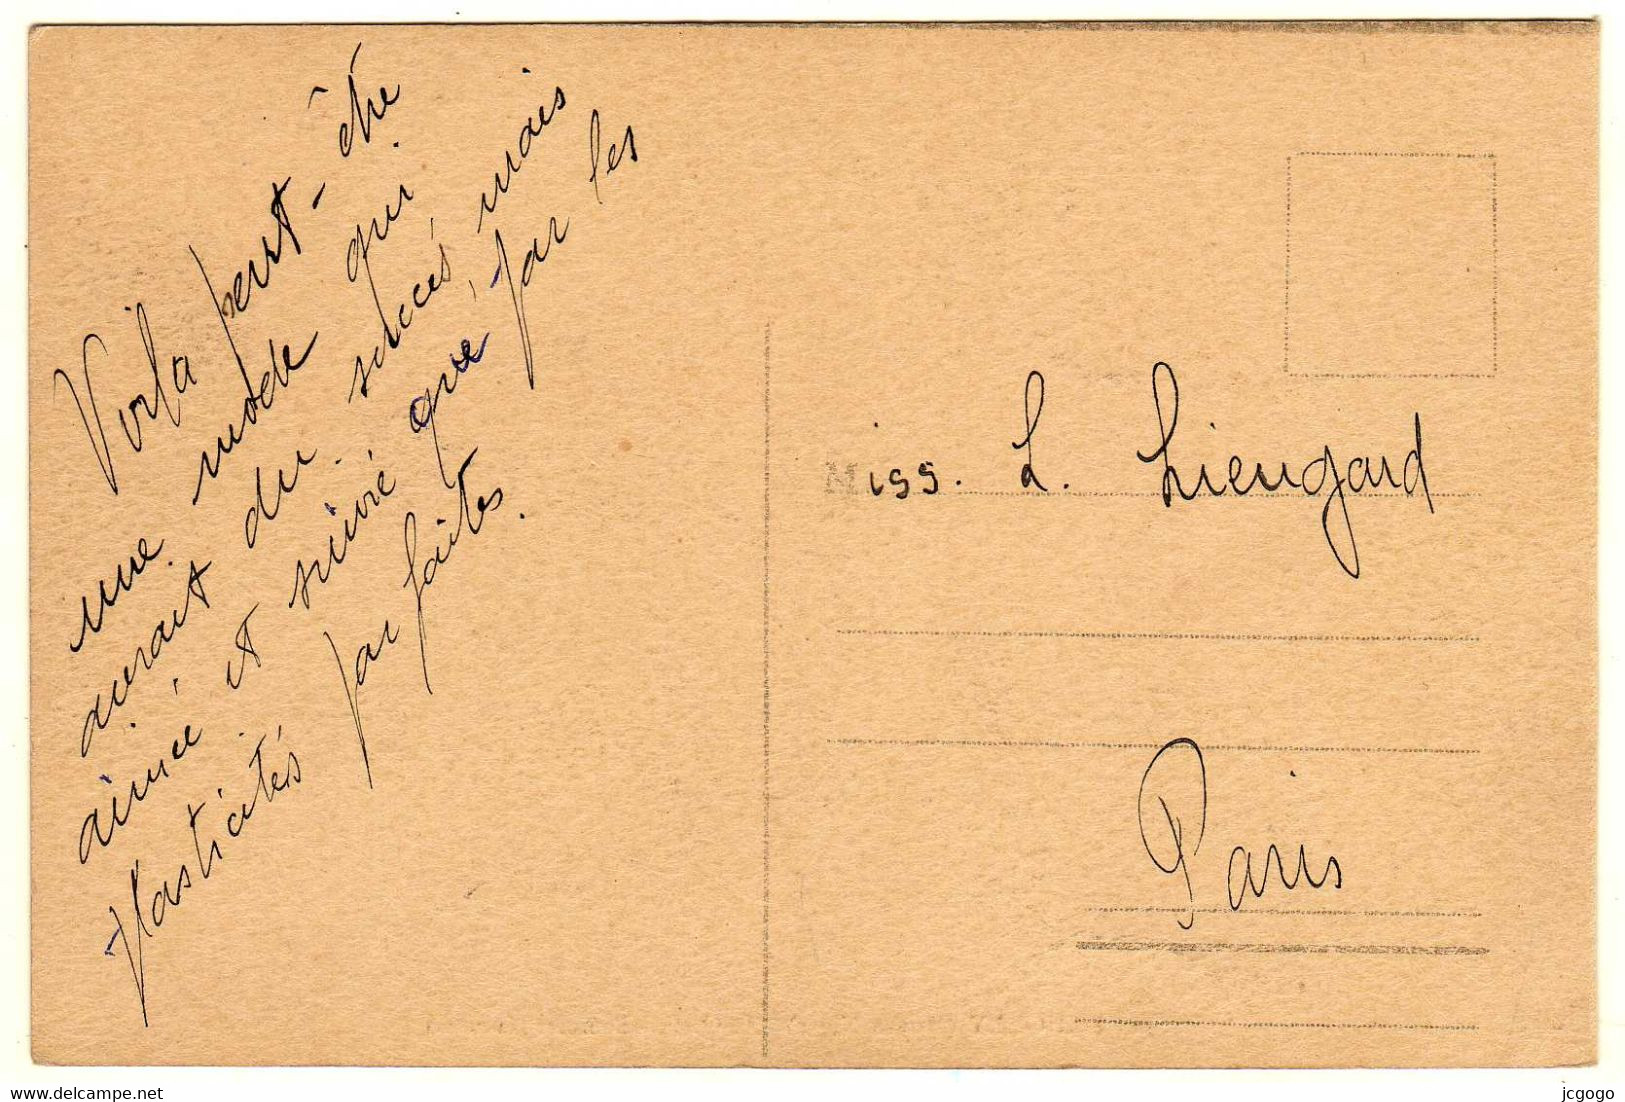 Voilà peut-être
une mode qui
aurait du succès, mais
aimée et suivie que, par les
plasticités parfaites.
Miss. L. Liengard
Paris
www.delcampe.net
jcgogo